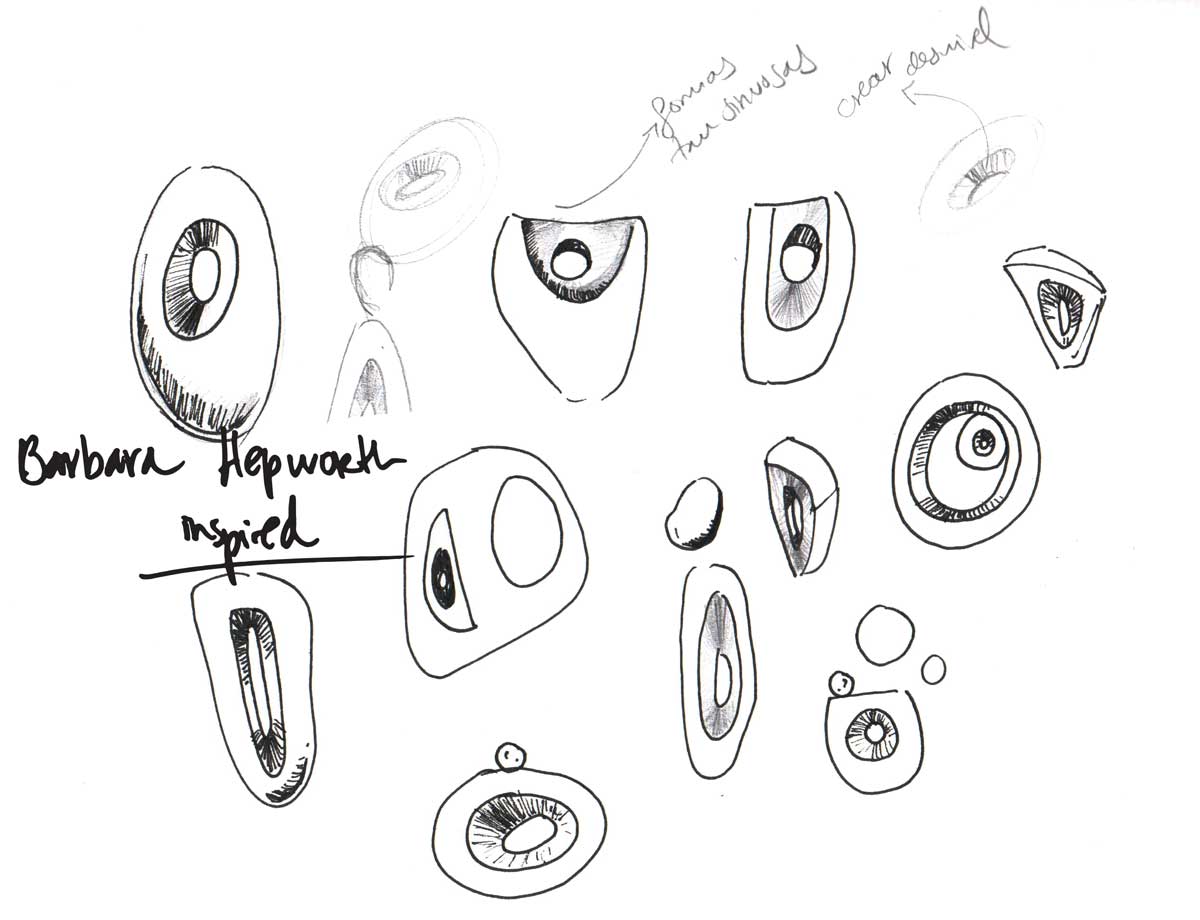 formas
tan sinuosas
crear desnivel
Barbara Hepworth
inspired